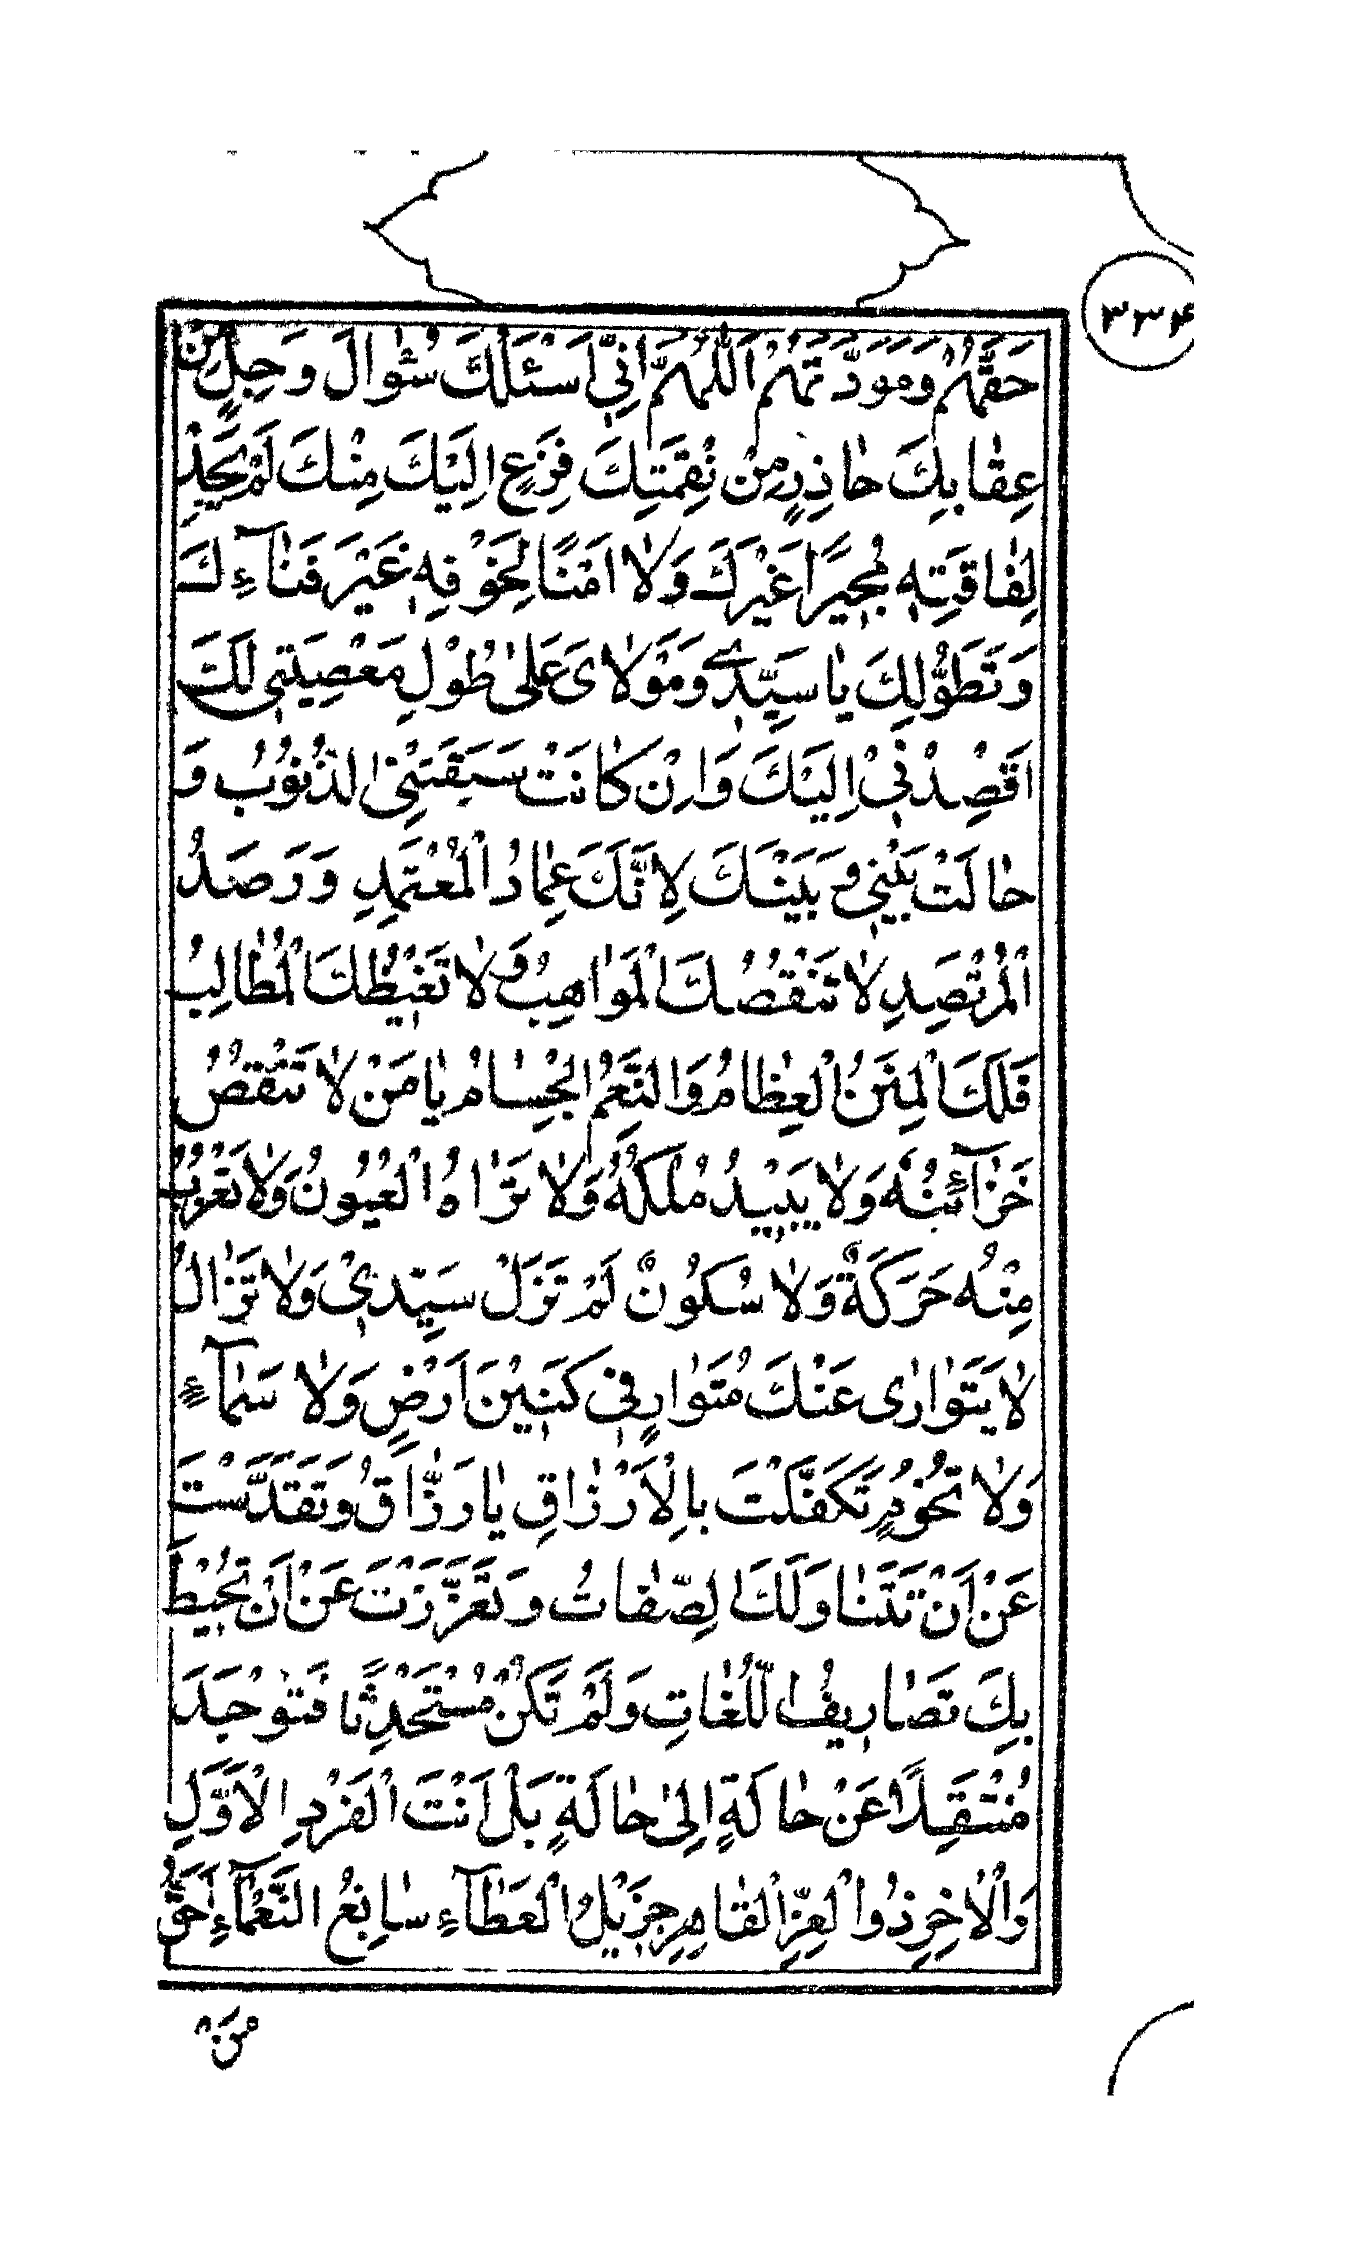 ٣٣۴
حَقَّهُمْ وَمَوَدَّتَهُمْ اَللّٰهُمَّ اِنّٖى اَسْئَلُكَ سُؤٰالَ وَجِلٍ مِنْ
عِقٰابِكَ حٰاذِرٍ مِنْ نِقْمَتِكَ فَزِعٍ اِلَيْكَ مِنْكَ لَمْ يَجِدْ
لِفٰاقَتِهٖ مُجٖيرًا غَيْرَكَ وَلٰا اَمْنًا لِخَوْفِهٖ غَيْرَ فَنٰآءِكَ
وَتَطَوُّلِكَ يٰا سَيِّدٖى وَمَوْلٰاىَ عَلىٰ طُوْلِ مَعْصِيَتٖى لَكَ
اَقْصِدْنٖىْ اِلَيْكَ وَاِنْ كٰانَتْ سَبَقَتْنِى الذُّنُوْبُ وَ
حٰالَتْ بَيْنٖى وَبَيْنَكَ لِاَنَّكَ عِمٰادُ الْمُعْتَمِدِ وَرَصَدُ
الْمُرْتَصِدِ لٰا تَنْقُصُكَ الْمَوٰاهِبُ وَلٰا تَغٖيْظُكَ الْمَطٰالِبُ
فَلَكَ الْمِنَنُ الْعِظٰامُ وَالنِّعَمُ الْجِسٰامُ يٰا مَنْ لٰا تَنْقُصُ
خَزٰآئِنُهُ وَلٰا يَبٖيْدُ مُلْكُهُ وَلٰا تَرٰاهُ الْعُيُوْنُ وَلٰا تَعْزُبُ
مِنْهُ حَرَكَةٌ وَلٰا سُكُوْنٌ لَمْ تَزَلْ سَيِّدٖىْ وَلٰا تَزٰالُ
لٰا يَتَوٰارٰى عَنْكَ مُتَوٰارٍ فٖى كَنٖيْنِ اَرْضٍ وَلٰا سَمٰآءٍ
وَلٰا تُخُوْمٍ تَكَفَّلْتَ بِالْاَرْزٰاقِ يٰا رَزّٰاقُ وَتَقَدَّسْتَ
عَنْ اَنْ تَتَنٰاوَلَكَ الصِّفٰاتُ وَتَعَزَّزْتَ عَنْ اَنْ تُحٖيْطَ
بِكَ تَصٰارٖيفُ اللُّغٰاتِ وَلَمْ تَكُنْ مُسْتَحْدِثًا فَتُوْجَدَ
مُنْتَقِلًا عَنْ حٰالَةٍ اِلىٰ حٰالَةٍ بَلْ اَنْتَ الْفَرْدِ الْاَوَّلِ
وَالْاٰخِرِ ذُوا الْعِزِّ الْقٰاهِرِ جَزٖيْلُ الْعَطٰآءِ سٰابِغُ النَّعْمٰآءِ اَحَقُّ
مَنْ